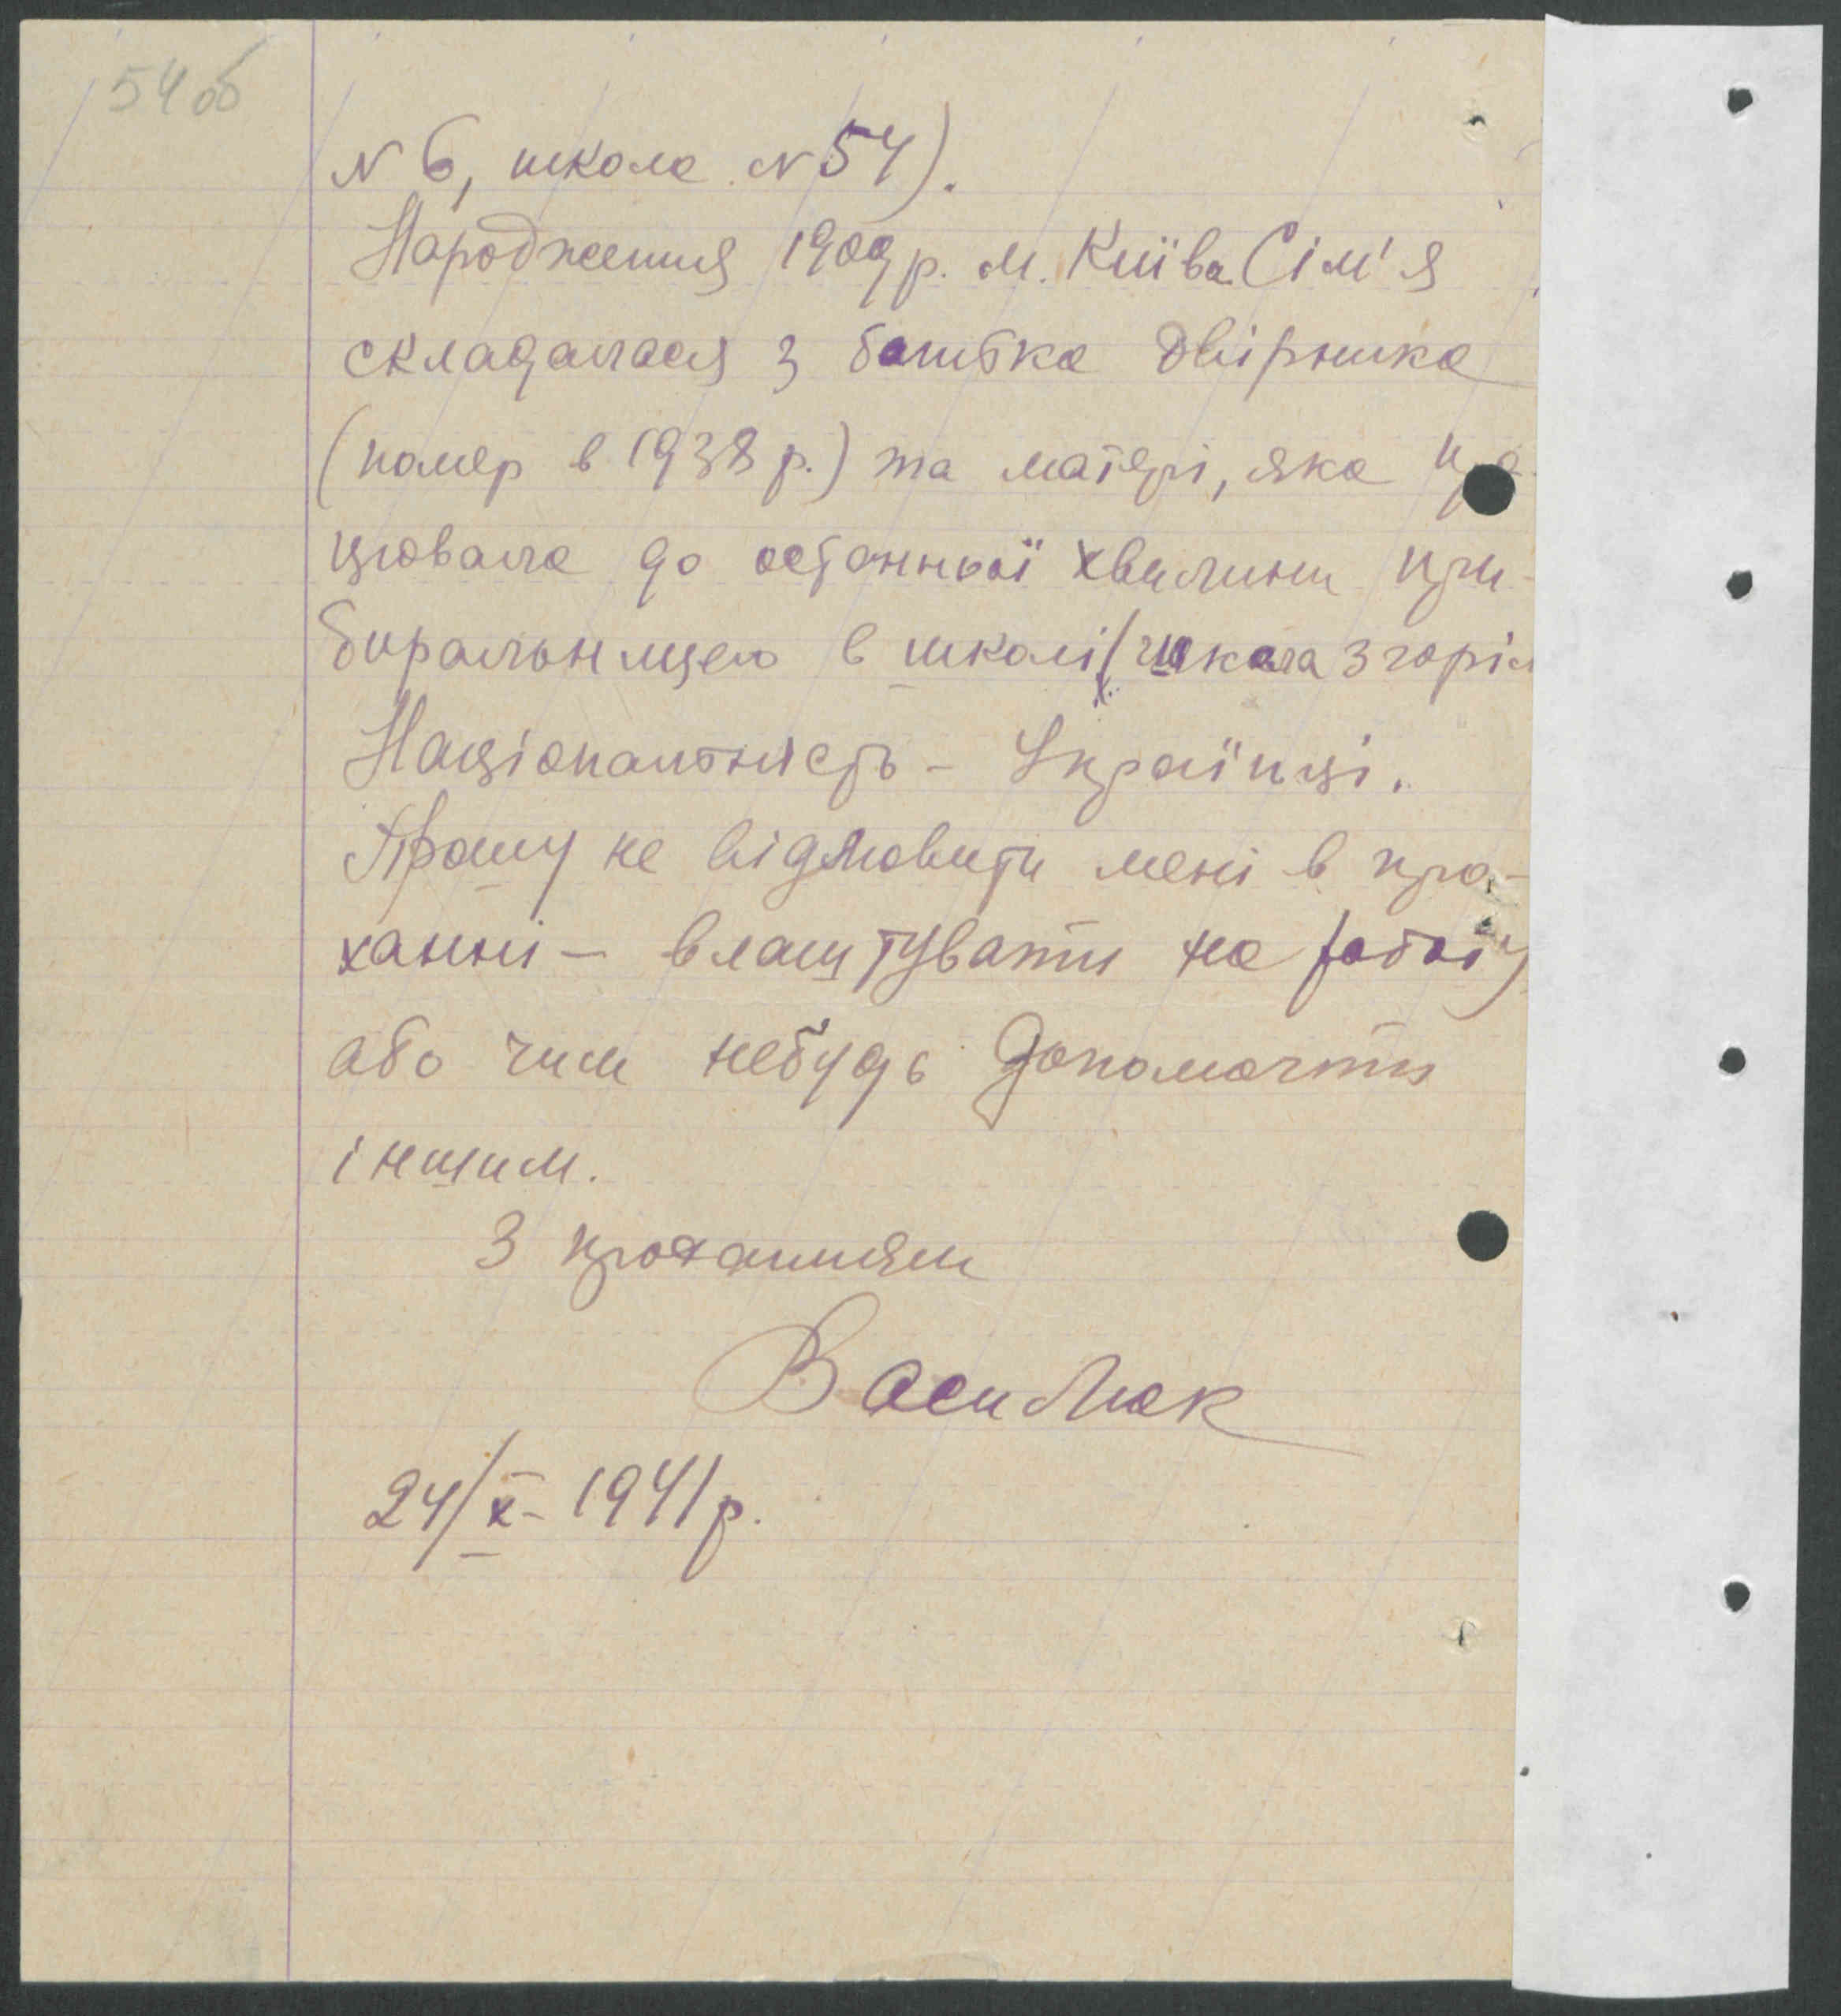 54 об
N 6, школа N 54).
Народження 1909 р. м. Київа. Сім'я
складалася з батька двірника
(помер в 1938 р.) та матері, яка пра-
цювала до останньої хвилини при-
биральницею в школі (школа згоріл
Національність - Українці.
Прошу не відмовити мені в про-
ханні - влаштувати на роботу
або чим небудь допомогти
іншим.
З проханням
Василюк
24/X - 1941 р.